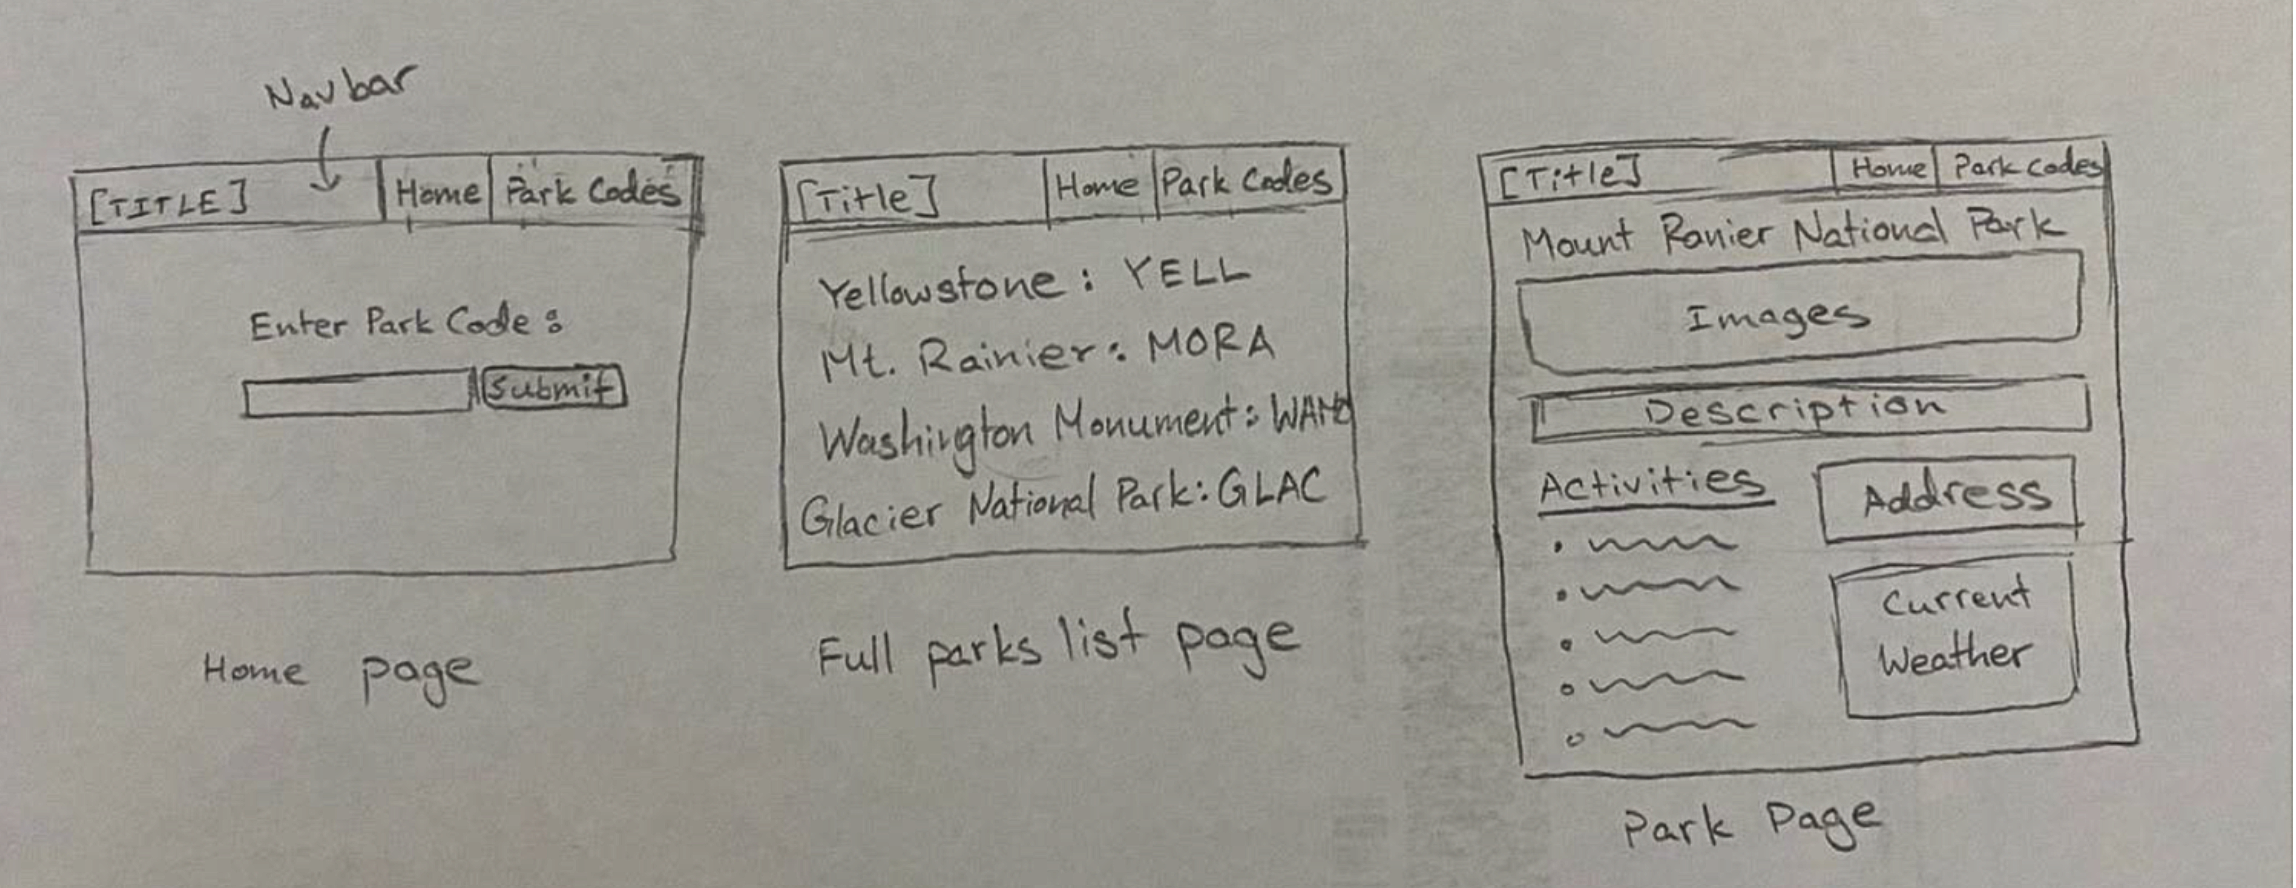 Navbar
[TITLE] Home Park Codes
Enter Park Code:
Submit
Home page
[Title] Home Park Codes
Yellowstone: YELL
Mt. Rainier: MORA
Washington Monument: WAMO
Glacier National Park: GLAC
Full parks list page
[Title] Home Park Codes
Mount Ranier National Park
Images
Description
Activities
Address
Current
Weather
Park Page